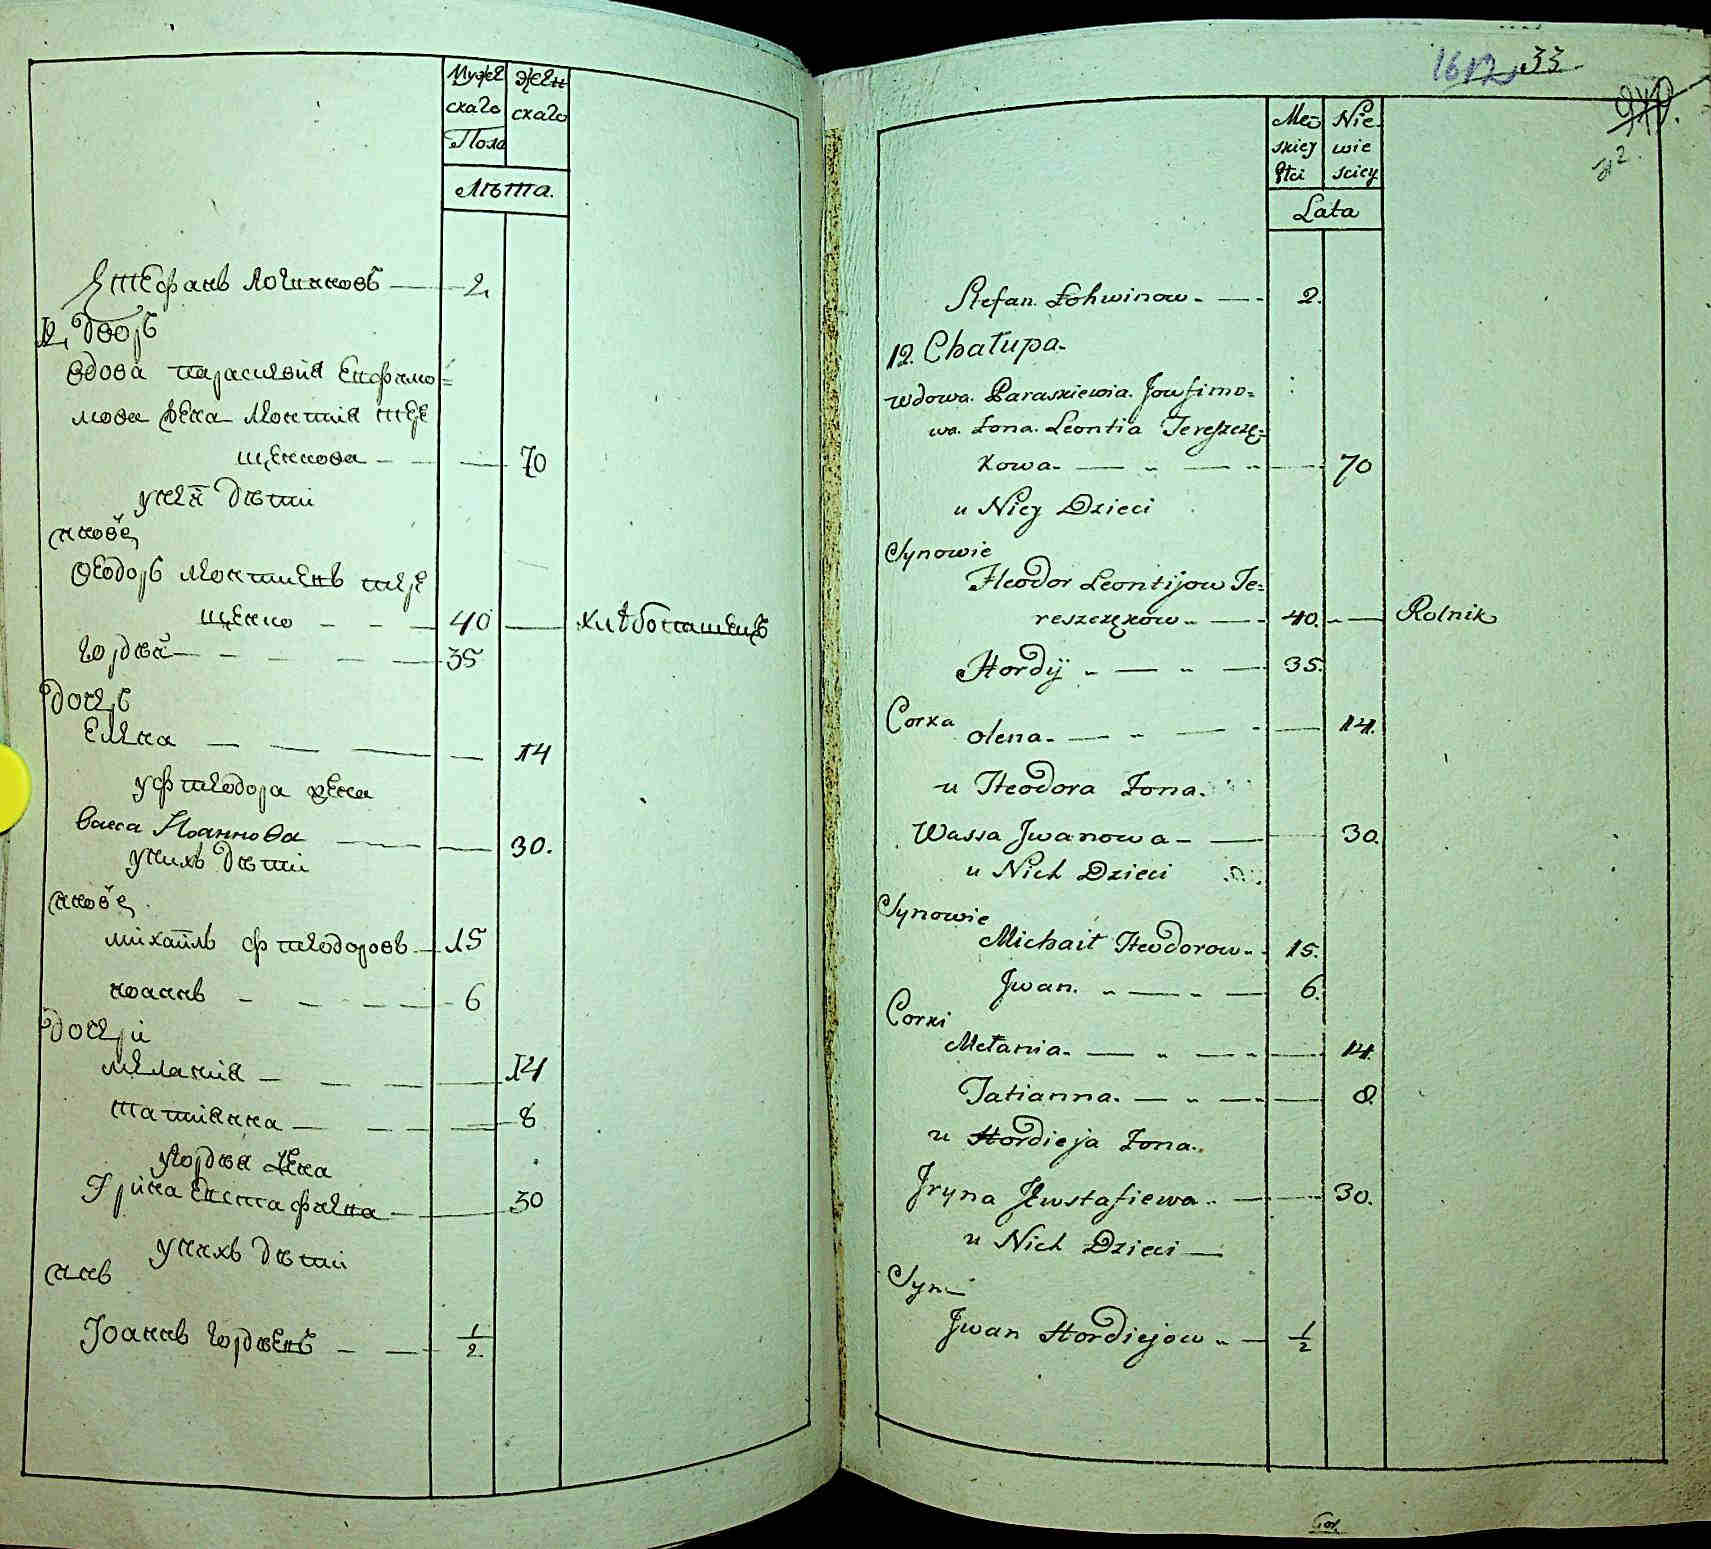 Мужес
Женс
скаго
скаго
Пола
Лѣта.
Стефанъ Логиновъ 2
12, дворъ
вдова параскевія Ендфимо=
мова жена Леонтія тере
щенкова 70
у нея дѣти
сновѣ
Ѳеодоръ леонтиевъ тере
щенко 40 хлѣбопашецъ
Гордѣй 35
дочеръ
Елена 14
у фтеодора жена
васса Иоаннова 30.
у нихъ дѣти
сновѣ
михаилъ фтеодоровъ 15
иоаннъ 6
дочери
меланія 14
татіанна 8
у Гордѣя жена
Ірина Евстафиева 30
у нихъ дѣти
снъ
Іоаннъ Гордѣевъ 1/2
33
Mę= Nie=
skiey wie
Płci sciey
Lata
Stefan Łohwinow 2.
12. Chałupa.
wdowa. Paraskiewia. Jowfimo=
wa. Żona. Leontia Tereszczę=
kowa. 70
u Niey Dzieci
Synowie
Fteodor Leontijow Te=
reszczękow 40. Rolnik
Hordÿ 35.
Corka
olena. 14.
u Fteodora Żona.
Wassa Jwanowa 30.
u Nich Dzieci
Synowie
Michaił Fteodorow 15.
Jwan. 6.
Corki
Mełania. 14.
Tatianna. 8.
u Hordieja Żona.
Jryna Jewstafiewa 30.
u Nich Dzieci
Syn
Jwan Hordiejow 1/2